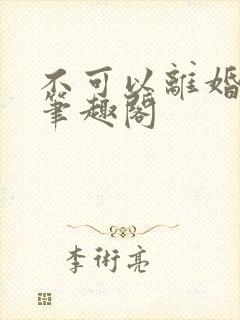 不可以離婚
筆趣閣
李術亮